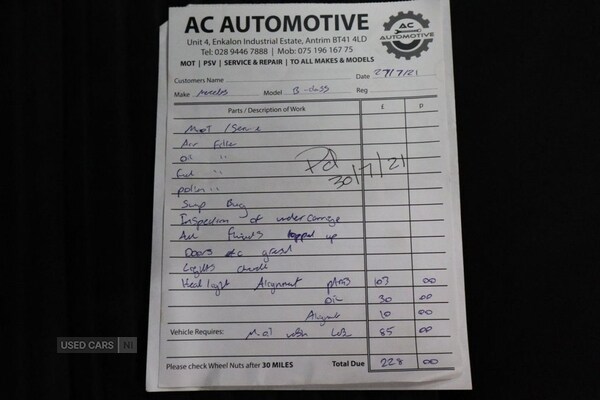 AC AUTOMOTIVE
Unit 4, Enkalon Industrial Estate, Antrim BT41 4LD
Tel: 028 9446 7888 | Mob: 075 196 167 75
MOT | PSV | SERVICE & REPAIR | TO ALL MAKES & MODELS
AC
AUTOMOTIVE
Customers Name Date 27/7/21
Make Model B-class Reg
Parts / Description of Work £ p
MOT / Service
Air Filter
Oil "
Fuel "
pollen "
Pd
30/7/21
Sump Bung
Inspection of undercarriage
All Fluids topped up
Doors etc greased
Lights
Headlight Alignment parts 103 00
Oil 30 00
10 00
Vehicle Requires: MOT 85 00
Please check Wheel Nuts after 30 MILES Total Due 228 00
USED CARS NI